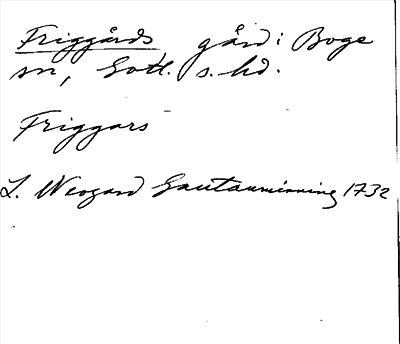 Friggårds, gård i Boge
sn, Gotl. s. hd.
Friggars
L. Neogard Gautauminning 1732